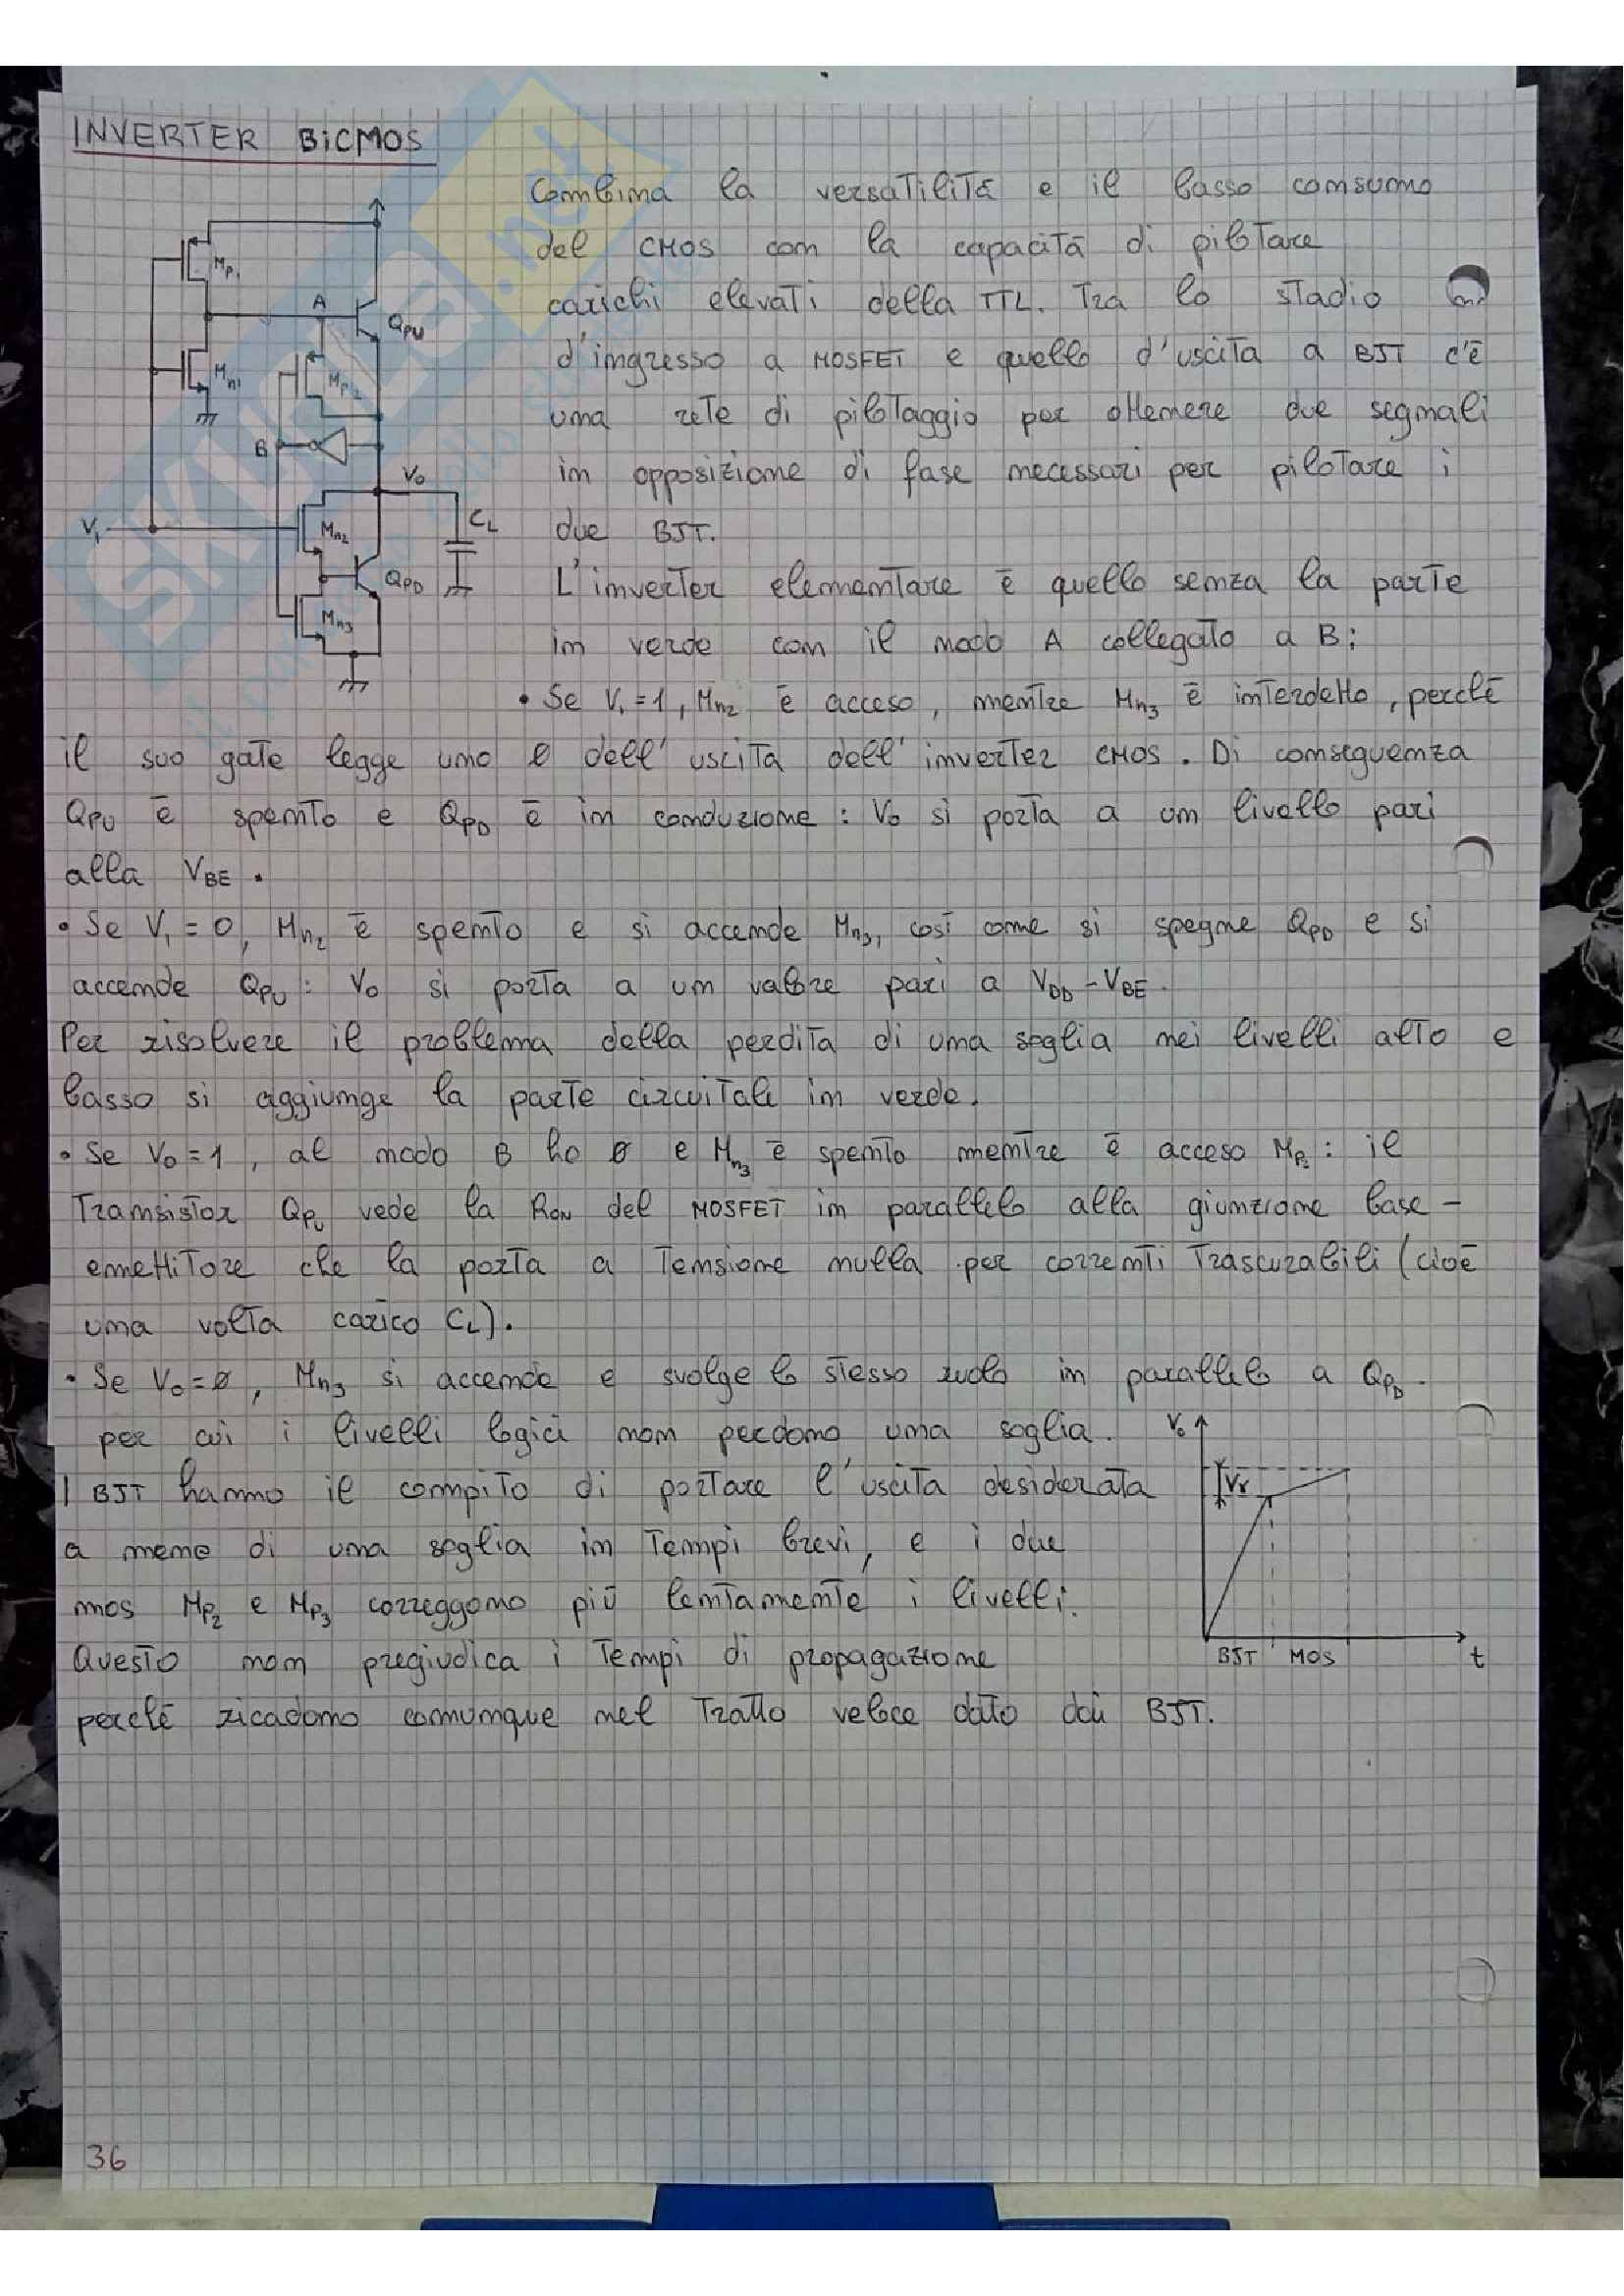 INVERTER BiCMOS
Combina la versatilità e il basso consumo
del CMOS con la capacità di pilotare
carichi elevati della TTL. Tra lo stadio
d'ingresso a MOSFET e quello d'uscita a BJT c'è
una rete di pilotaggio per ottenere due segnali
in opposizione di fase necessari per pilotare i
due BJT.
L'inverter elementare è quello senza la parte
in verde con il nodo A collegato a B:
• Se Vi=1, Mn2 è acceso, mentre Mn3 è interdetto, perché
il suo gate legge uno 0 dell'uscita dell'inverter CMOS. Di conseguenza
QPU è spento e QPD è in conduzione: Vo si porta a un livello pari
alla VBE.
• Se Vi=0, Mn2 è spento e si accende Mn3, così come si spegne QPD e si
accende QPU: Vo si porta a un valore pari a VDD-VBE.
Per risolvere il problema della perdita di una soglia nei livelli alto e
basso si aggiunge la parte circuitale in verde.
• Se Vo=1, al nodo B ho 0 e Mn3 è spento mentre è acceso MP2: il
Transistor QPU vede la RON del MOSFET in parallelo alla giunzione base-
emettitore che la porta a tensione nulla per correnti trascurabili (cioè
una volta carico CL).
• Se Vo=0, Mn3 si accende e svolge lo stesso ruolo in parallelo a QPD.
per cui i livelli logici non perdono una soglia.
I BJT hanno il compito di portare l'uscita desiderata
a meno di una soglia in tempi brevi, e i due
mos MP2 e MP3 correggono più lentamente i livelli.
Questo non pregiudica i tempi di propagazione
perché ricadono comunque nel tratto veloce dato dai BJT.
MP1
A
QPU
Mn1
MP2
B
Vo
Vi
Mn2
CL
QPD
Mn3
Vo
Vγ
BJT MOS t
36
SKUOLa.net